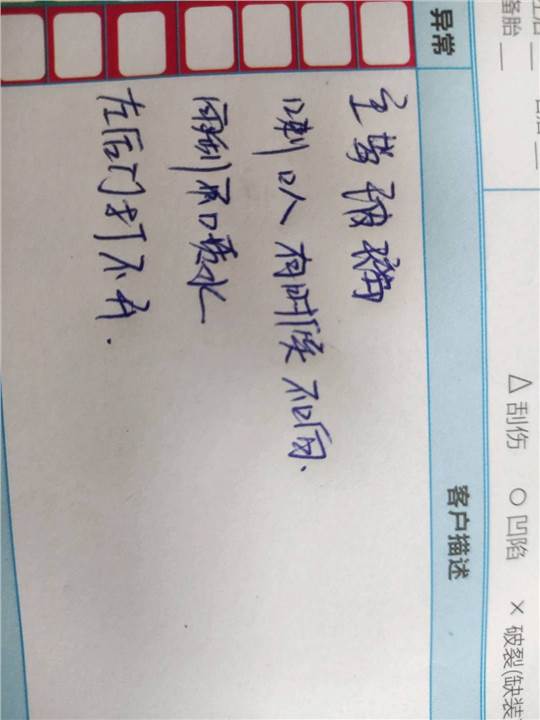 备胎
△ 刮伤 ○ 凹陷 × 破裂(缺装
异常 客户描述
主驾
喇叭有时候不响.
雨刮不喷水
左后门打不开.